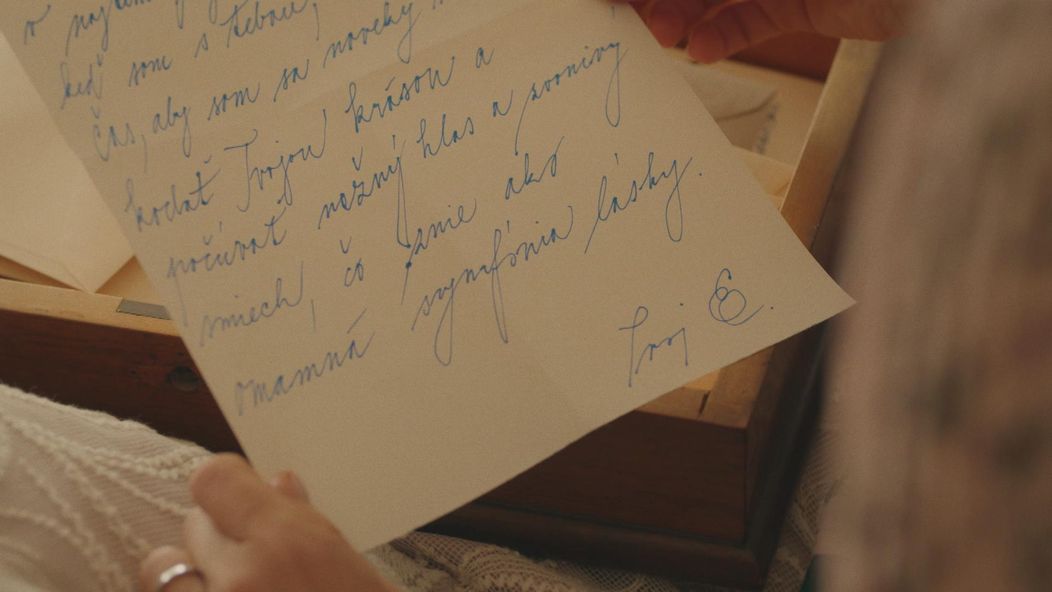 v
keď som s tebou,
čas, aby som sa naveky
kochať Tvojou krásou a
počúvať nežný hlas a zvonivý
smiech, čo znie ako
omamná symfónia lásky.
Tvoj E.